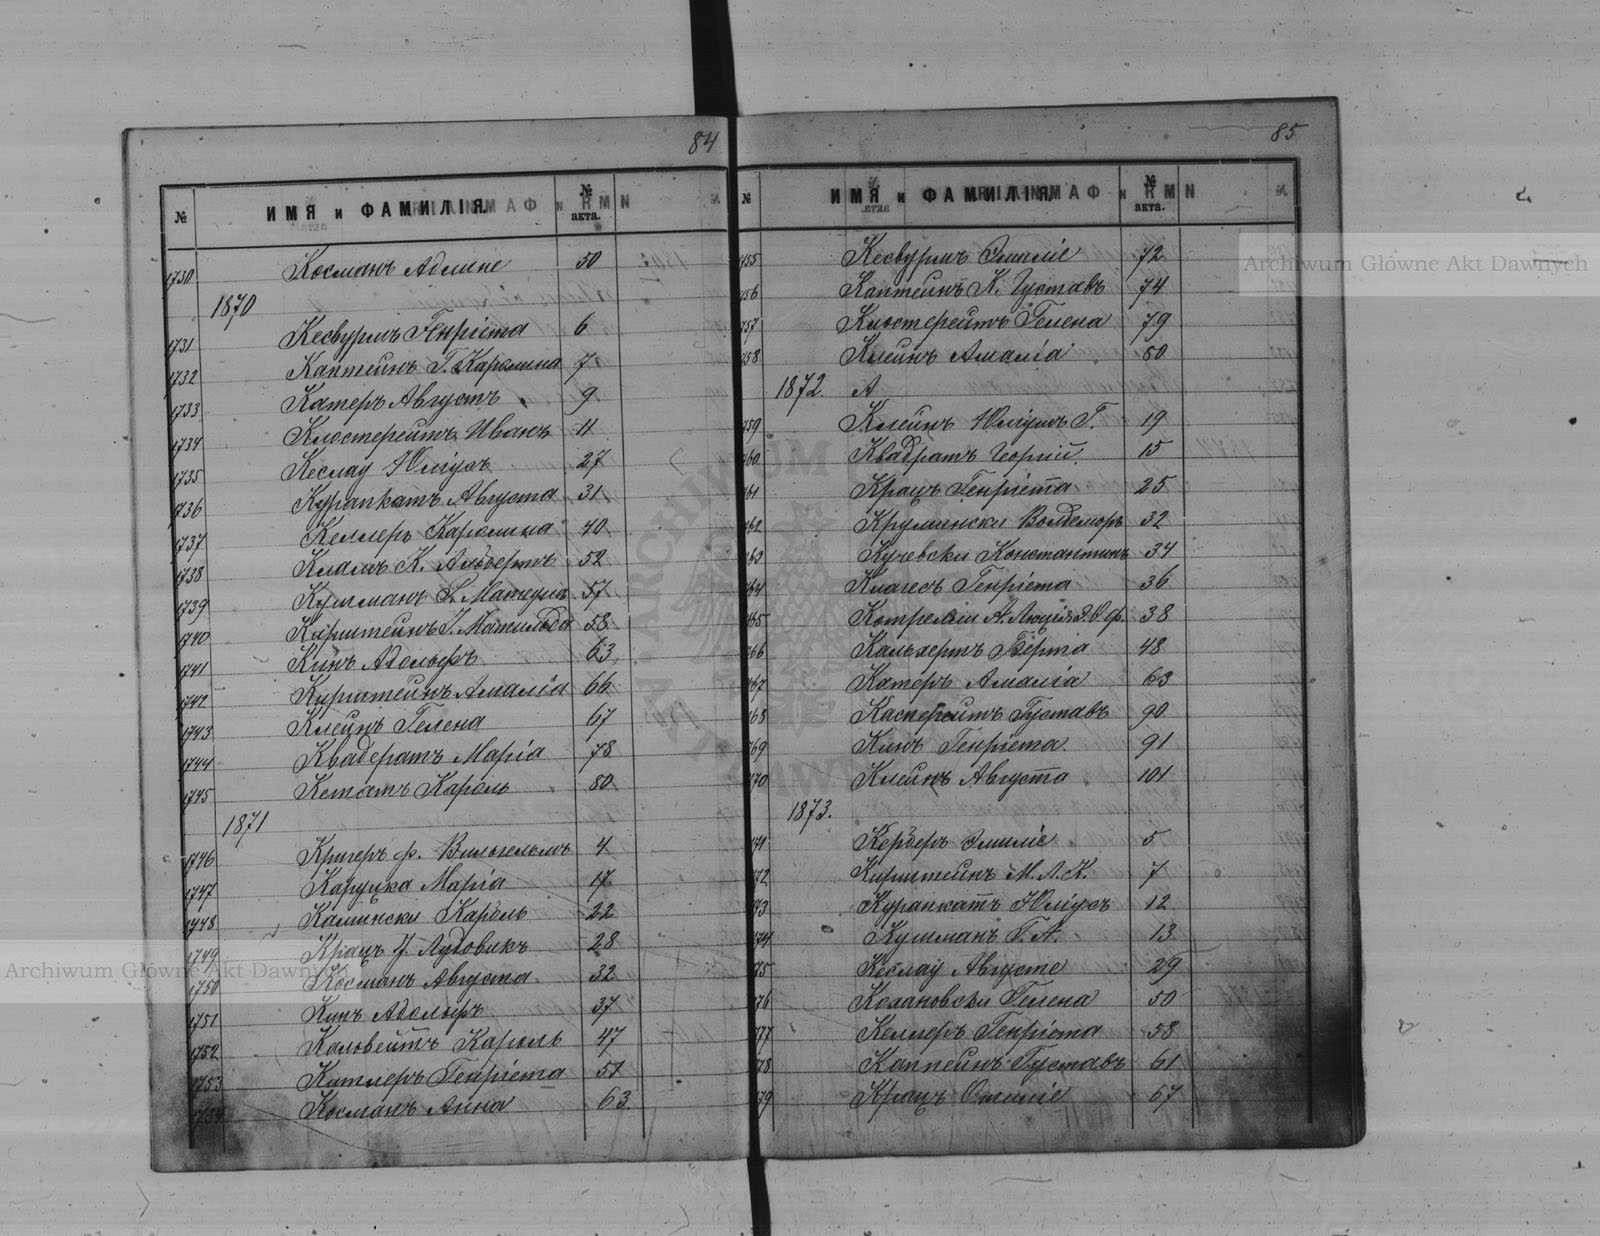 84
№ ИМЯ и ФАМИЛІЯ. № акта.
1730 Косманъ Адлине 50
1870
1731 Кесвурмъ Генріета 6
1732 Каптейнъ Г. Каролина 7
1733 Катеръ Августъ 9
1734 Клостерейтъ Иванъ 11
1735 Кеслау Юліусъ 27
1736 Курапкатъ Августа 31
1737 Келлеръ Каролина 40
1738 К. Альбертъ 52
1739 Кушманъ 57
1740 Кирштейнъ І. Матильда 58
1741 Кинъ Адольфъ 63
1742 Кирштейнъ Амалія 66
1743 Клейнъ Гелена 67
1744 Квадератъ Марія 78
1745 Кетатъ Кароль 80
1871
1746 Кригеръ ф. Вильгельмъ 4
1747 Каруцка Марія 17
1748 Камински Кароль 22
1749 Крацъ Лудовикъ 28
1750 Косманъ Августа 32
1751 Кинъ Адольфъ 37
1752 Каловейтъ Кароль 47
1753 Китлеръ Генріета 51
1754 Косманъ Анна 63
85
№ ИМЯ и ФАМИЛІЯ. № акта.
755 Кесвурмъ Эмиліе 72
756 Каптейнъ К. Густавъ 74
757 Клостерейтъ Гелена 79
758 Клейнъ Амалія 80
1872. А
759 Клейнъ Юліусъ Г. 19
760 Квадратъ Георгій 15
761 Крацъ Генріета 25
762 Крумински Волдемаръ 32
763 Кучевски Константинъ 34
764 Клагесъ Генріета 36
765 А. Люція Э. О. ф. 38
766 Кальхертъ Берта 48
767 Катеръ Амалія 63
768 Касперейтъ Густавъ 90
769 Кинъ Генріета 91
770 Клейнъ Августа 101
1873.
771 Керберъ Эмиліе 5
772 Кирштейнъ М. Л. К. 7
773 Курапкатъ Юліусъ 12
774 Кушманъ Г. А. 13
775 Кеслау Августе 29
776 Кохановски Гелена 50
777 Келлеръ Генріета 58
778 Каптейнъ Густавъ 61
779 Крацъ Отиліе 67
Archiwum Główne Akt Dawnych
Archiwum Główne Akt Dawnych